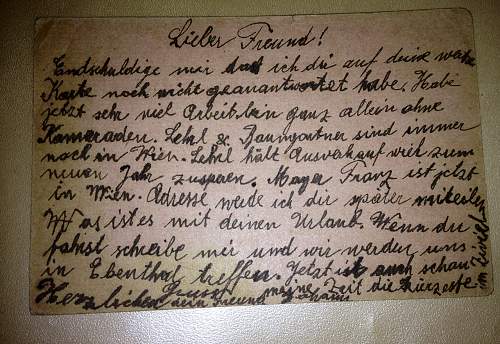 Lieber Freund!
Endschuldige mir das ich dir auf deine werte
Karte noch nicht geanantwortet habe. Habe
jetzt sehr viel Arbeit bin ganz allein ohne
Kameraden. Lehrl & Baumgartner sind immer
noch in Wien. Lehrl hält Ausverkauf weil zum
neuen Jahr zusperen. Mayer Franz ist jetzt
in Wien. Adresse werde ich dir später mitteilen
Was ist es mit deinen Urlaub. Wenn du
fahrst schreibe mir und wir werden uns
in Ebenthal treffen. Jetzt ist auch schon
meine Zeit die kürzeste.
Herzlichen Gruss dein Freund Johann